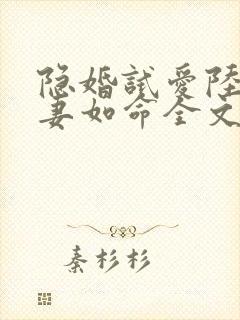 隐婚试爱陆
妻如命全文
秦杉杉